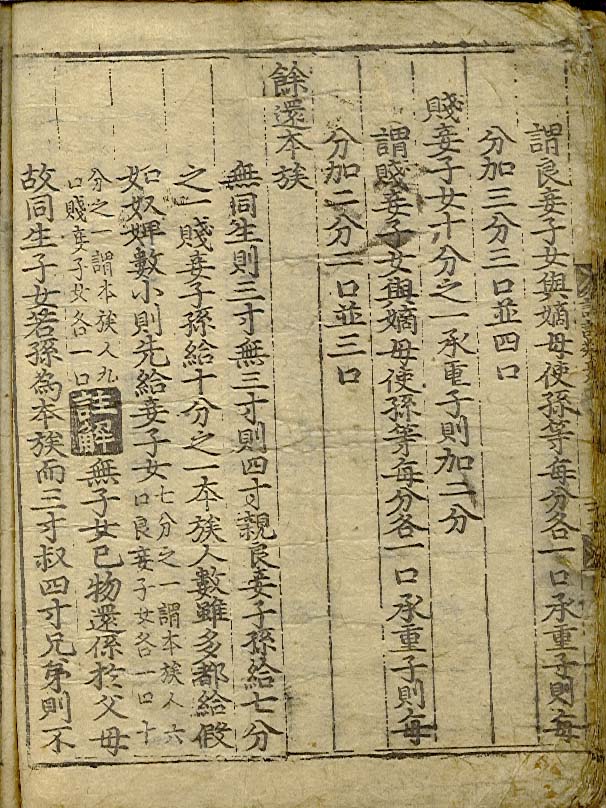 謂良妾子女與嫡母使孫等每分各一口承重子則每
分加三分三口並四口
賤妾子女十分之一承重子則加二分
謂賤妾子女與嫡母使孫等每分各一口承重子則每
分加二分二口並三口
餘還本族
無同生則三寸無三寸則四寸親良妾子孫給七分
之一賤妾子孫給十分之一本族人數雖多都給假
如奴婢數小則先給妾子女七分之一謂本族人六口良妾子女各一口十
分之一謂本族人九口賤妾子女各一口註解無子女已物還係於父母
故同生子女若孫為本族而三寸叔四寸兄弟則不